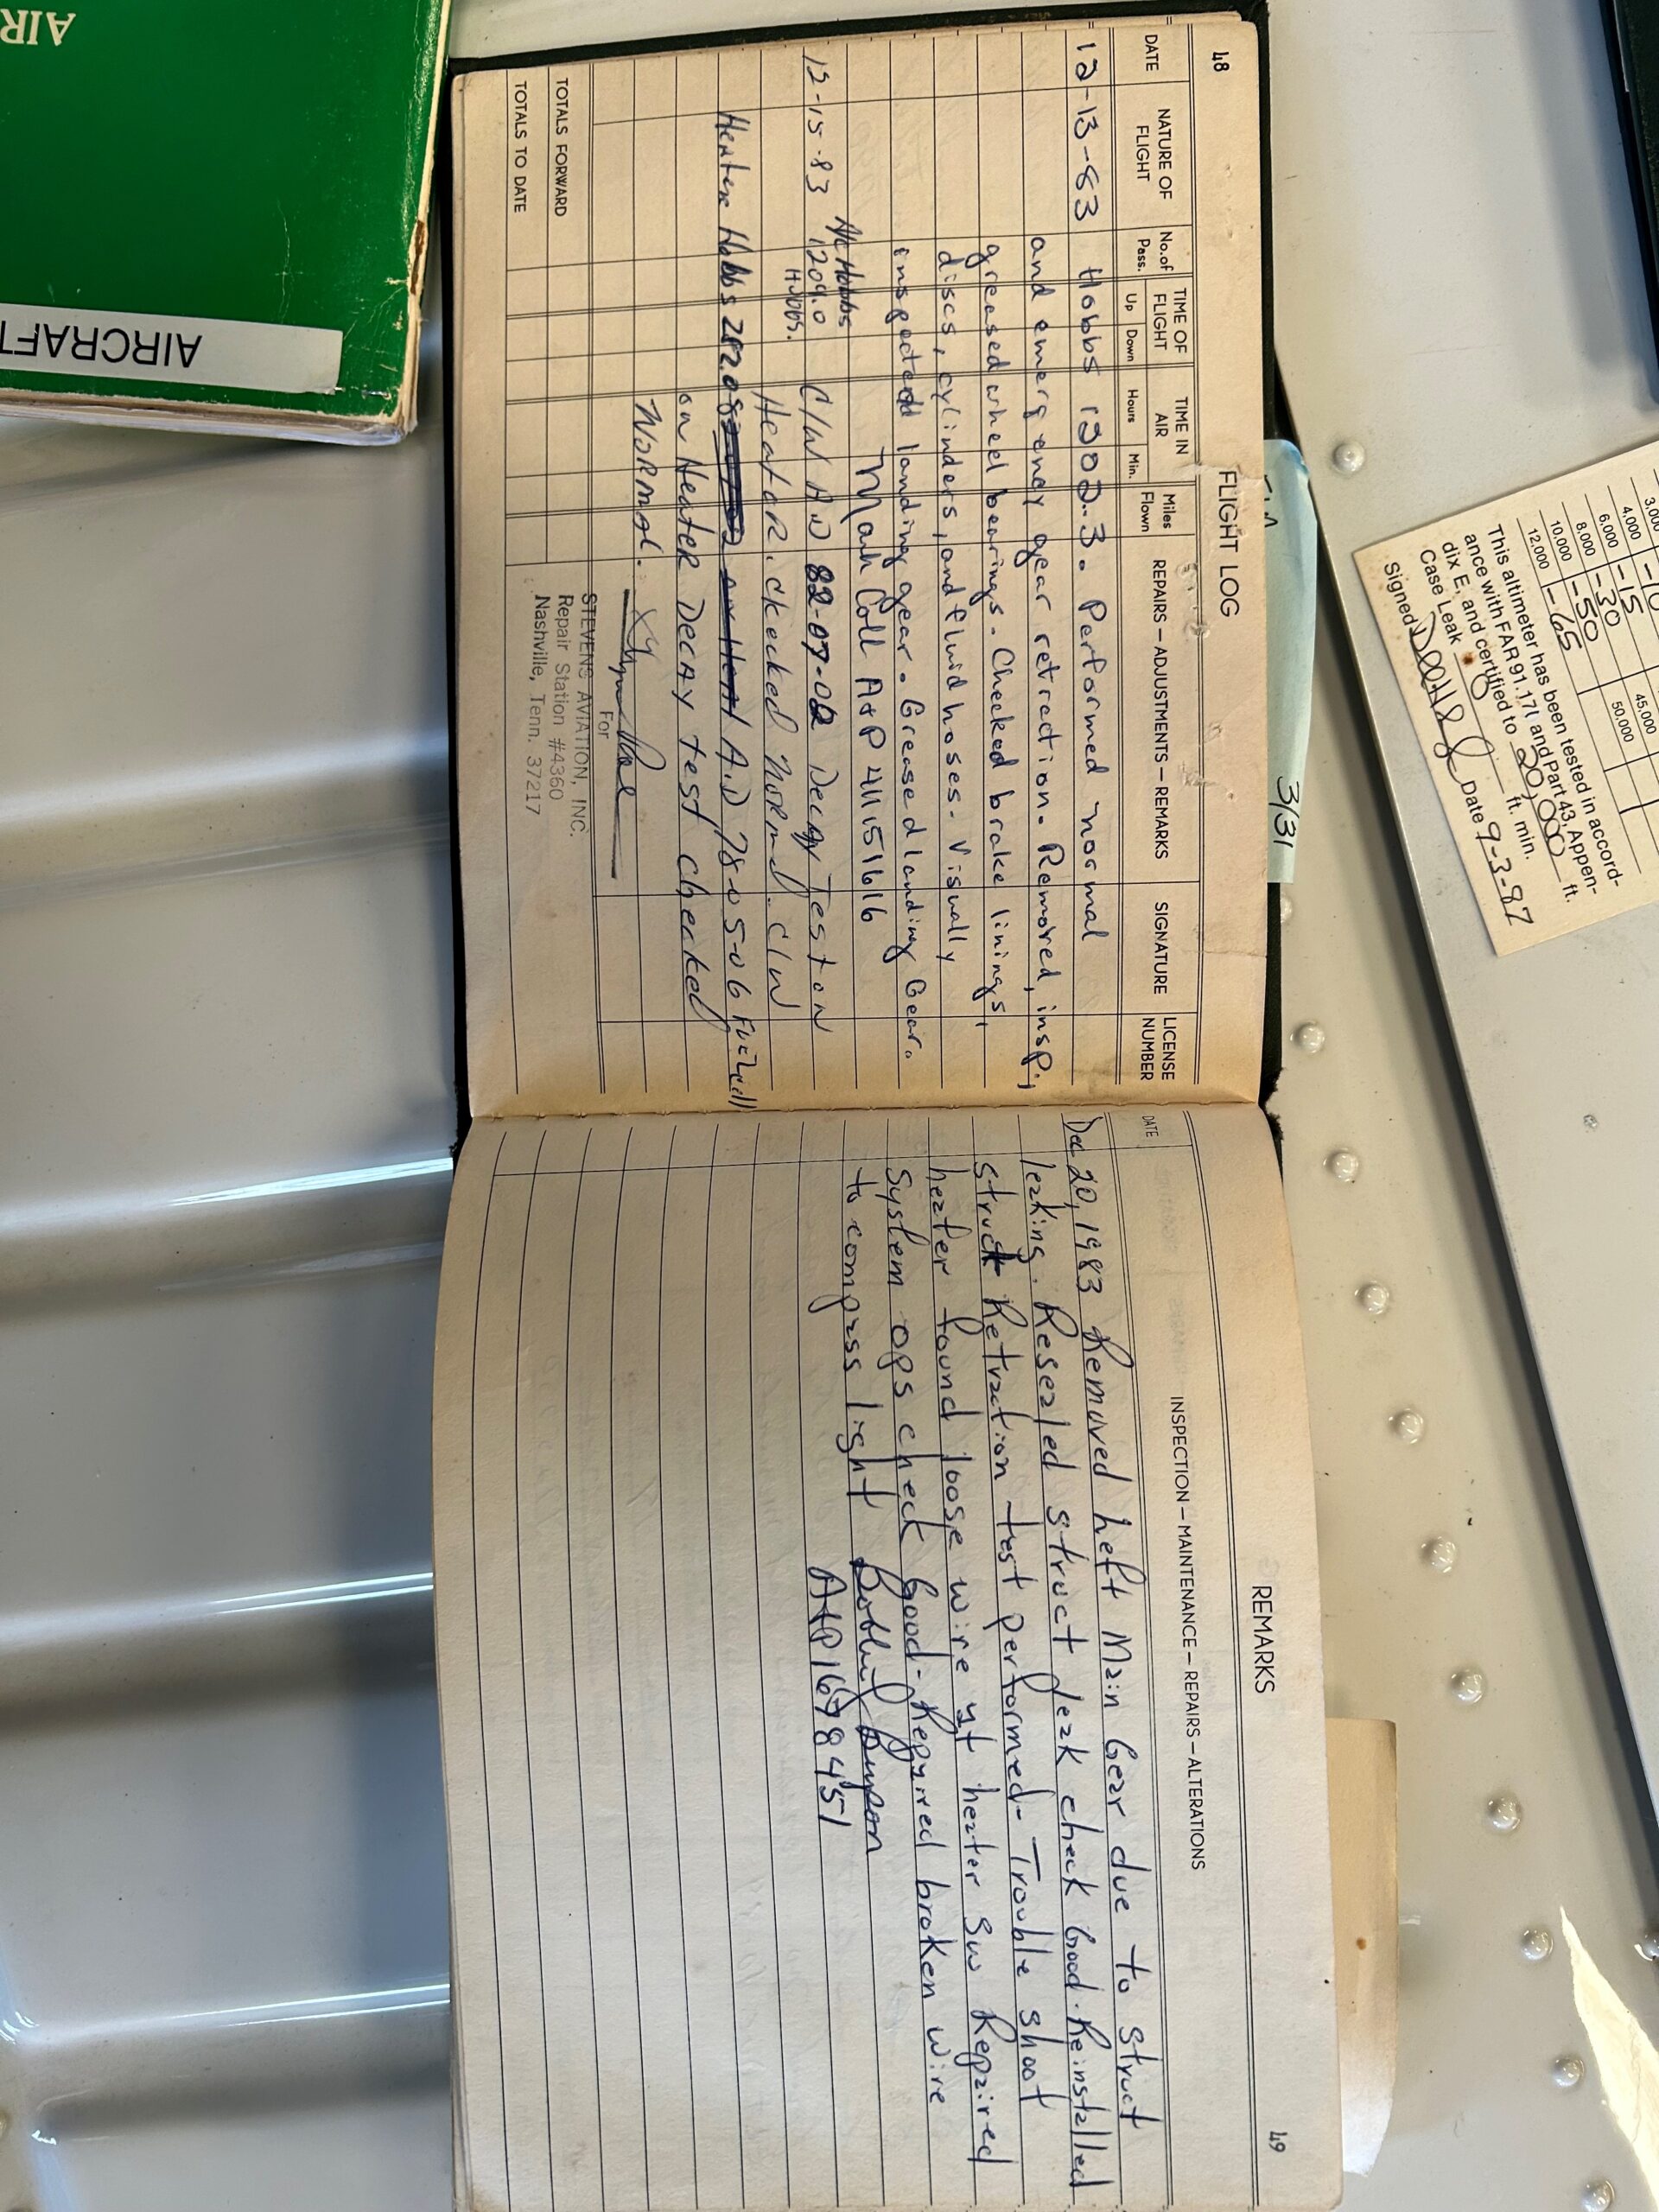 48
FLIGHT LOG
DATE
NATURE OF FLIGHT
No. of Pass.
TIME OF FLIGHT
Up Down
TIME IN AIR
Hours Min.
Miles Flown
REPAIRS — ADJUSTMENTS — REMARKS
SIGNATURE
LICENSE NUMBER
12-13-83 Hobbs 1202.3. Performed normal
and emergency gear retraction. Removed, insp.,
greased wheel bearings. Checked brake linings,
discs, cylinders, and fluid hoses. Visually
inspected landing gear. Greased landing Gear.
Mark Coll A+P 411515616
A/c Hobbs
12-15-83 1209.0 C/W A.D 82-07-02 Decay Test on
Hobbs. Heater. ckecked normal. C/W
Heater Hobbs 282.08 A.D 78-05-06 Fuel
on Heater Decay test checked
Normal.
STEVENS AVIATION, INC.
For
Repair Station #4360
Nashville, Tenn. 37217
TOTALS FORWARD
TOTALS TO DATE
49
REMARKS
DATE
INSPECTION — MAINTENANCE — REPAIRS — ALTERATIONS
Dec 20, 1983 Removed Left Main Gear due to struct
leaking. Resealed struct leak check Good. Reinstalled
struct Retraction test performed- Trouble shoot
heater found loose wire at heater sw Repaired
System ops check Good. Repaired broken wire
to compass light
A+P 1678451
AIR
AIRCRAFT
3/31
3,000 -10
4,000 -15
6,000 -30
8,000 -50
10,000 -65
12,000
45,000
50,000
This altimeter has been tested in accord-
ance with FAR 91.171 and Part 43, Appen-
dix E, and certified to 20,000 ft.
Case Leak 0 ft. min.
Signed Date 9-3-87